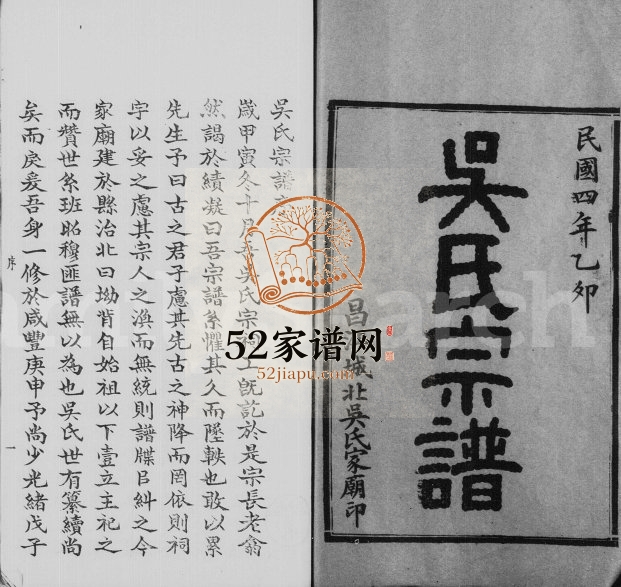 民國四年乙卯
吳氏宗譜
昌 城北吳氏家廟印
吳氏宗譜
歲甲寅冬十月 吳氏宗祠 工旣訖於是宗長老翕
然謁於績凝曰吾宗譜系懼其久而墜軼也敢以累
先生予曰古之君子慮其先古之神降而罔依則祠
宇以妥之慮其宗人之渙而無統則譜牒㠯糾之今
家廟建於縣治北曰坳背自始祖以下壹立主祀之
而贊世系班昭穆匪譜無以為也吳氏世有纂續尚
矣而戾爰吾身一修於咸豐庚申予尚少光緒戊子
序
一
52家谱网
52jiapu.com